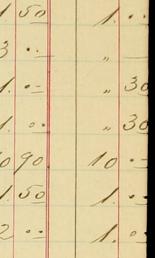 1 50 1. ..
3 .. „ —
1. .. „ 30
1. .. „ 30
0 90. 10 ..
1. 50 1. ..
2 .. 1. ..